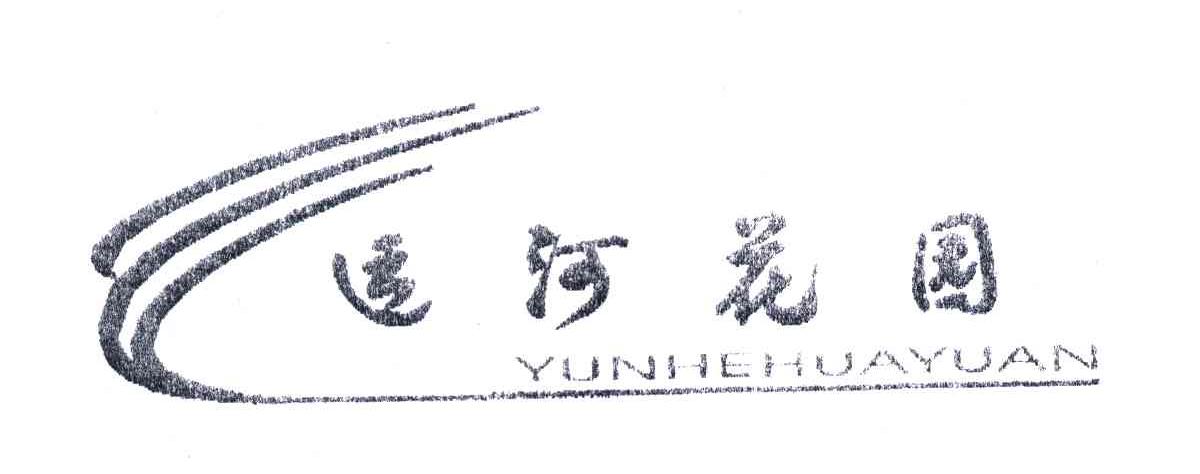 运河花园
YUNHEHUAYUAN